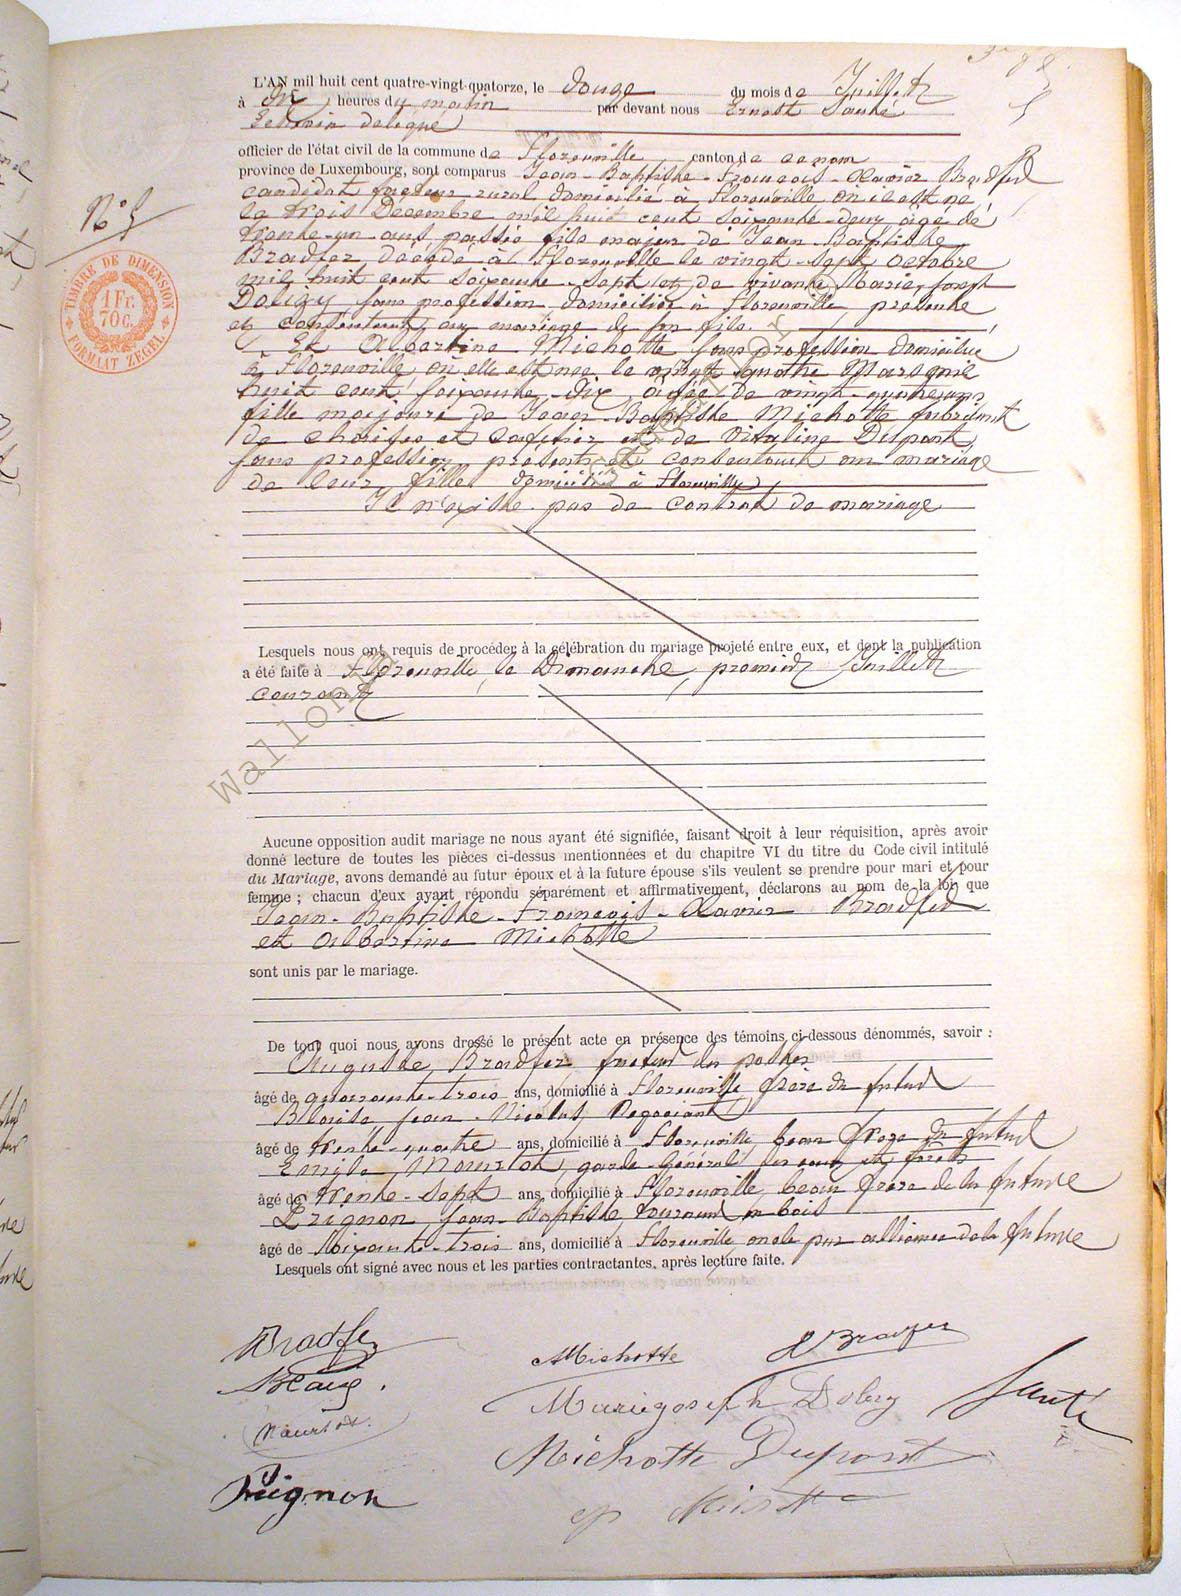 N° 5
TIMBRE DE DIMENSION
1 Fr.
70 C.
FORMAAT ZEGEL
L'AN mil huit cent quatre-vingt-quatorze, le douze du mois de Juillet
à dix heures du matin par devant nous Ernest Santé
Echevin délégué
officier de l'état civil de la commune de Florenville canton de ce nom
province de Luxembourg, sont comparus Jean-Baptiste-François-Xavier Bradfer
candidat facteur rural domicilié à Florenville où il est né
le trois Décembre mil huit cent soixante-deux, âgé de
trente-un ans passés fils majeur de Jean-Baptiste
Bradfer, décédé à Florenville le vingt-sept octobre
mil huit cent soixante-sept et de vivante Marie, Joseph
sans profession domiciliée à Florenville, présente
et consentant au mariage de son fils.
Et Albertine Michotte sans profession domiciliée
à Florenville, où elle est née le vingt quatre Mars mil
huit cent soixante-dix, âgée de vingt-quatre ans
fille majeure de Jean-Baptiste Michotte fabricant
de chaises et cafetier et de Vitaline Dupont,
sans profession, présents et consentant au mariage
de leur fille domiciliés à Florenville,
Il n'existe pas de contrat de mariage
Lesquels nous ont requis de procéder à la célébration du mariage projeté entre eux, et dont la publication
a été faite à Florenville, le Dimanche, premier Juillet
courant
Wallonia
Aucune opposition audit mariage ne nous ayant été signifiée, faisant droit à leur réquisition, après avoir
donné lecture de toutes les pièces ci-dessus mentionnées et du chapitre VI du titre du Code civil intitulé
du Mariage, avons demandé au futur époux et à la future épouse s'ils veulent se prendre pour mari et pour
femme ; chacun d'eux ayant répondu séparément et affirmativement, déclarons au nom de la loi que
Jean-Baptiste-François-Xavier Bradfer
et Albertine Michotte
sont unis par le mariage.
De tout quoi nous avons dressé le présent acte en présence des témoins ci-dessous dénommés, savoir :
Auguste Bradfer, facteur des postes
âgé de quarante-trois ans, domicilié à Florenville frère du futur
Jean-Nicolas, Négociant
âgé de trente-quatre ans, domicilié à Florenville beau frère du futur
Emile garde-général des eaux et forêts
âgé de trente-sept ans, domicilié à Florenville, beau frère de la future
Jean-Baptiste, tourneur en bois
âgé de soixante-trois ans, domicilié à Florenville, oncle par alliance de la future
Lesquels ont signé avec nous et les parties contractantes, après lecture faite.
Bradfer
AMichotte
Bradfer
Santé
Michotte Dupont